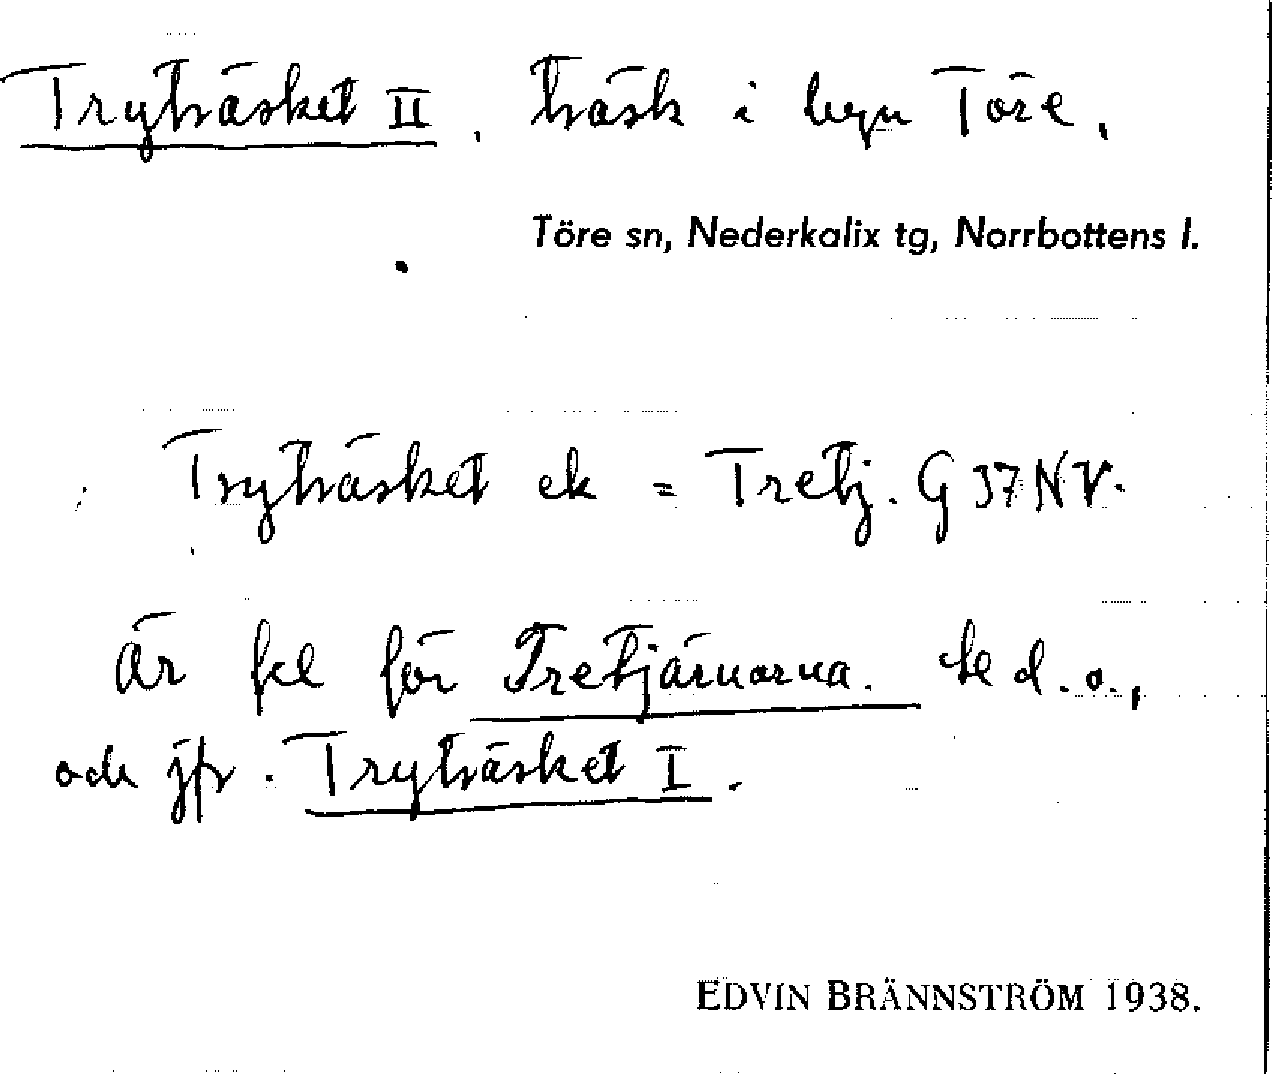 Tryträsket II, träsk i byn Töre,
Töre sn, Nederkalix tg, Norrbottens l.
Tryträsket ek = Tretj. G 37 NV.
är fel för Tretjärnarna. Se d.o.,
och jfr. Tryträsket I.
EDVIN BRÄNNSTRÖM 1938.